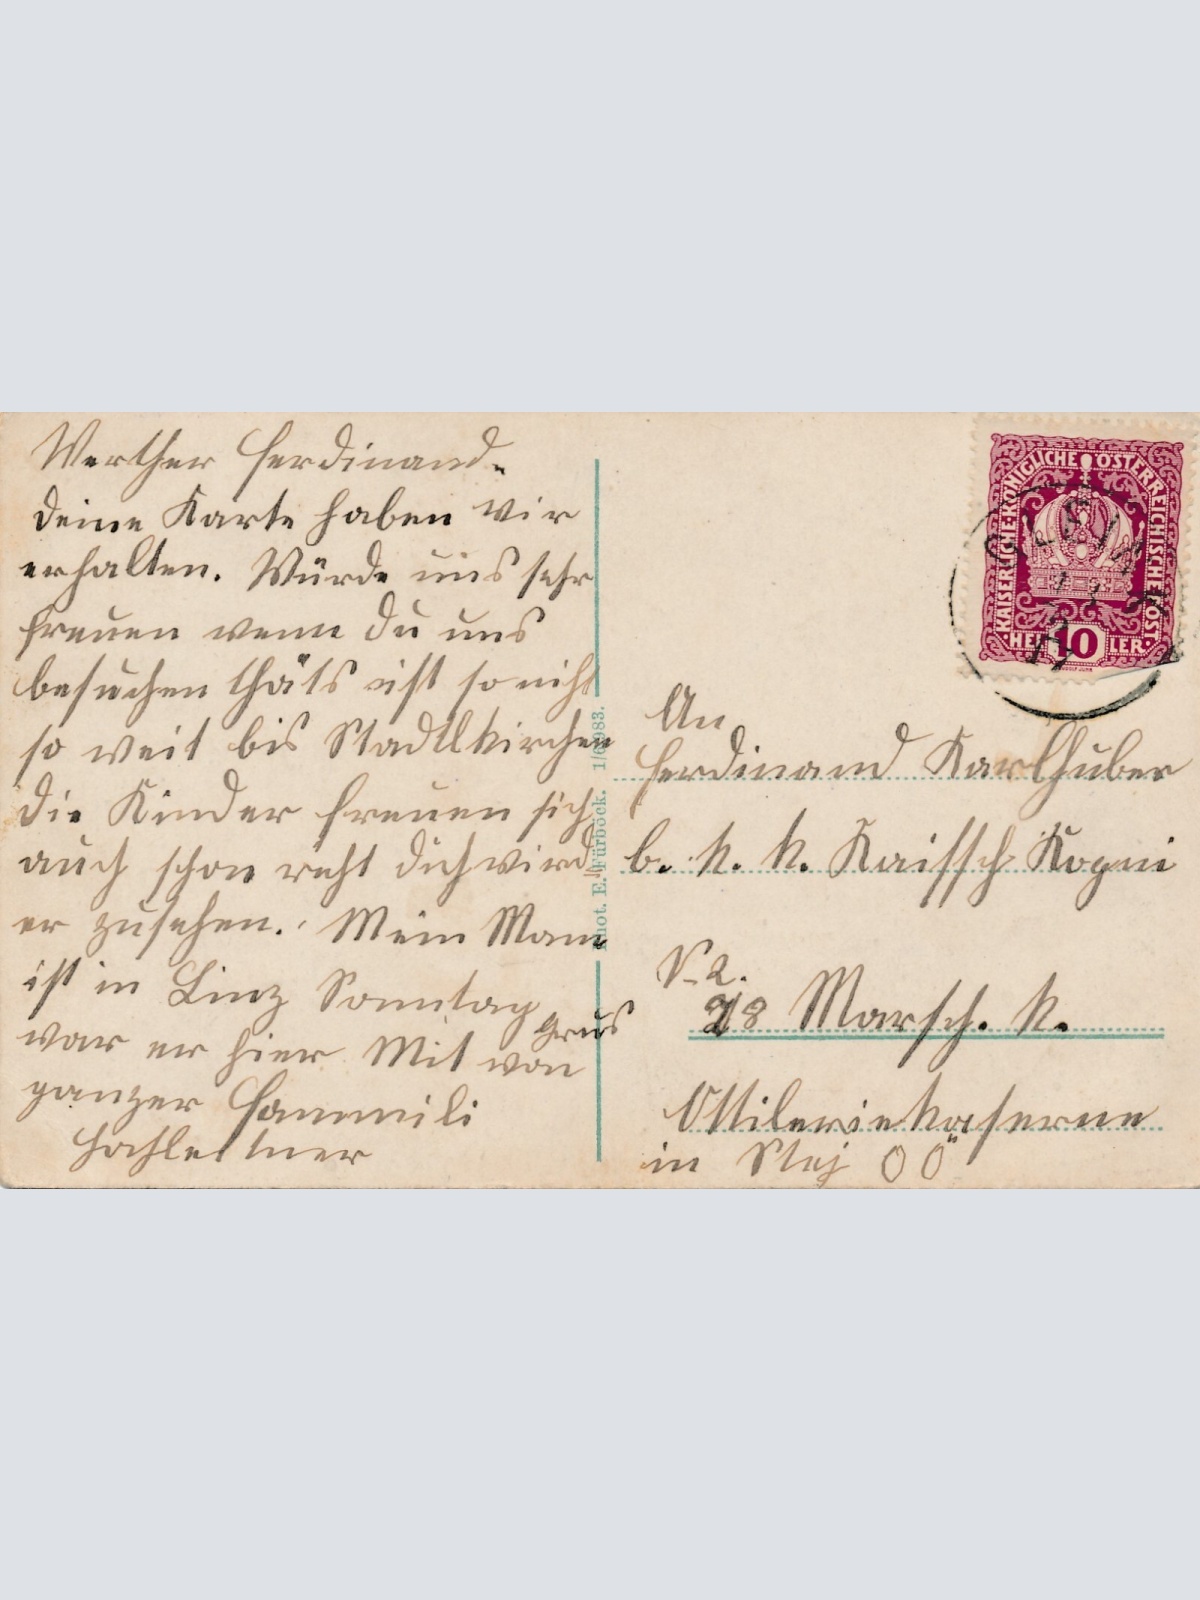 Werther Ferdinand.
deine Karte haben wir
erhalten. Würde uns sehr
freuen wenn du uns
besuchen thäts ist so nicht
so weit bis Stadlkirchen
die Kinder freuen sich
auch schon recht dich wied
er zusehen. Mein Mann
ist in Linz Sonntag
war er hier Mit Grus von
ganzer Fammili
Phot. E. Fürböck.
KAISERLICHE KÖNIGLICHE ÖSTERREICHISCHE POST
HELLER
10
An
Ferdinand Karlhuber
b. k. k.
N. 2.
Marsch. k.
Ottileriekaserne
in OÖ